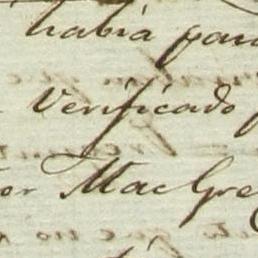 había para
verificado
or MacGre